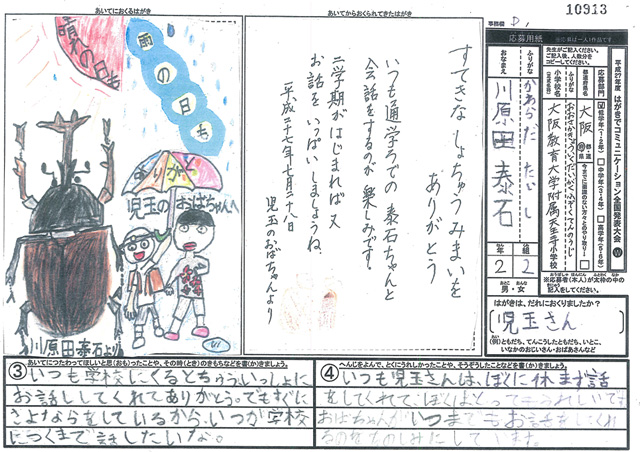 10913
あいてにおくるはがき
晴の日も
雨の日も
ありがとう
児玉のおばちゃんへ
川原田泰石より
あいてからおくられてきたはがき
すてきなしょちゅうみまいを
ありがとう
いつも通学ろでの 泰石ちゃんと
会話をするのが楽しみです。
二学期がはじまれば又
お話を いっぱいしましょうね。
平成二十七年七月二八日
児玉のおばちゃんより
事務欄
応募用紙
※応募は一人1作品です
ふりがな
かわらだ たいし
おなまえ
川原田 泰石
年
2
組
2
男・女
平成27年度 はがきでコミュニケーション全国発表大会
先生がご記入ください。
ご記入後、人数分を
コピーしてください。
応募部門
低学年(1・2年)
中学年(3・4年)
高学年(5・6年)
都道府県名
大阪
都・道
府・県
ふりがな
おおさかきょういくだいがくふぞくてんのうじ
小学校名
大阪教育大学附属天王寺小学校
※応募者(本人)が太枠の中の
記入をしてください。
はがきは、だれにおくりましたか?
児玉さん
(例)ともだち、てんこうしたともだち、いとこ、
いなかのおじいさん・おばあさんなど
③
あいてにつたわってほしいと思(おも)ったことや、その時(とき)のきもちなどを書(か)きましょう。
いつも学校にくるとちゅう、いっしょに
お話ししてくれてありがとう。でもすぐに
さよならをしているから、いつか学校
につくまで話したいな。
④
へんじをよんで、とくにうれしかったことや、そうぞうしたことなどを書(か)きましょう。
いつも児玉さんは、ぼくに休まず話
をしてくれて、ぼくはとってもうれしいです。
おばちゃんがいつまでもお話をしてくれ
るのをたのしみにしています。